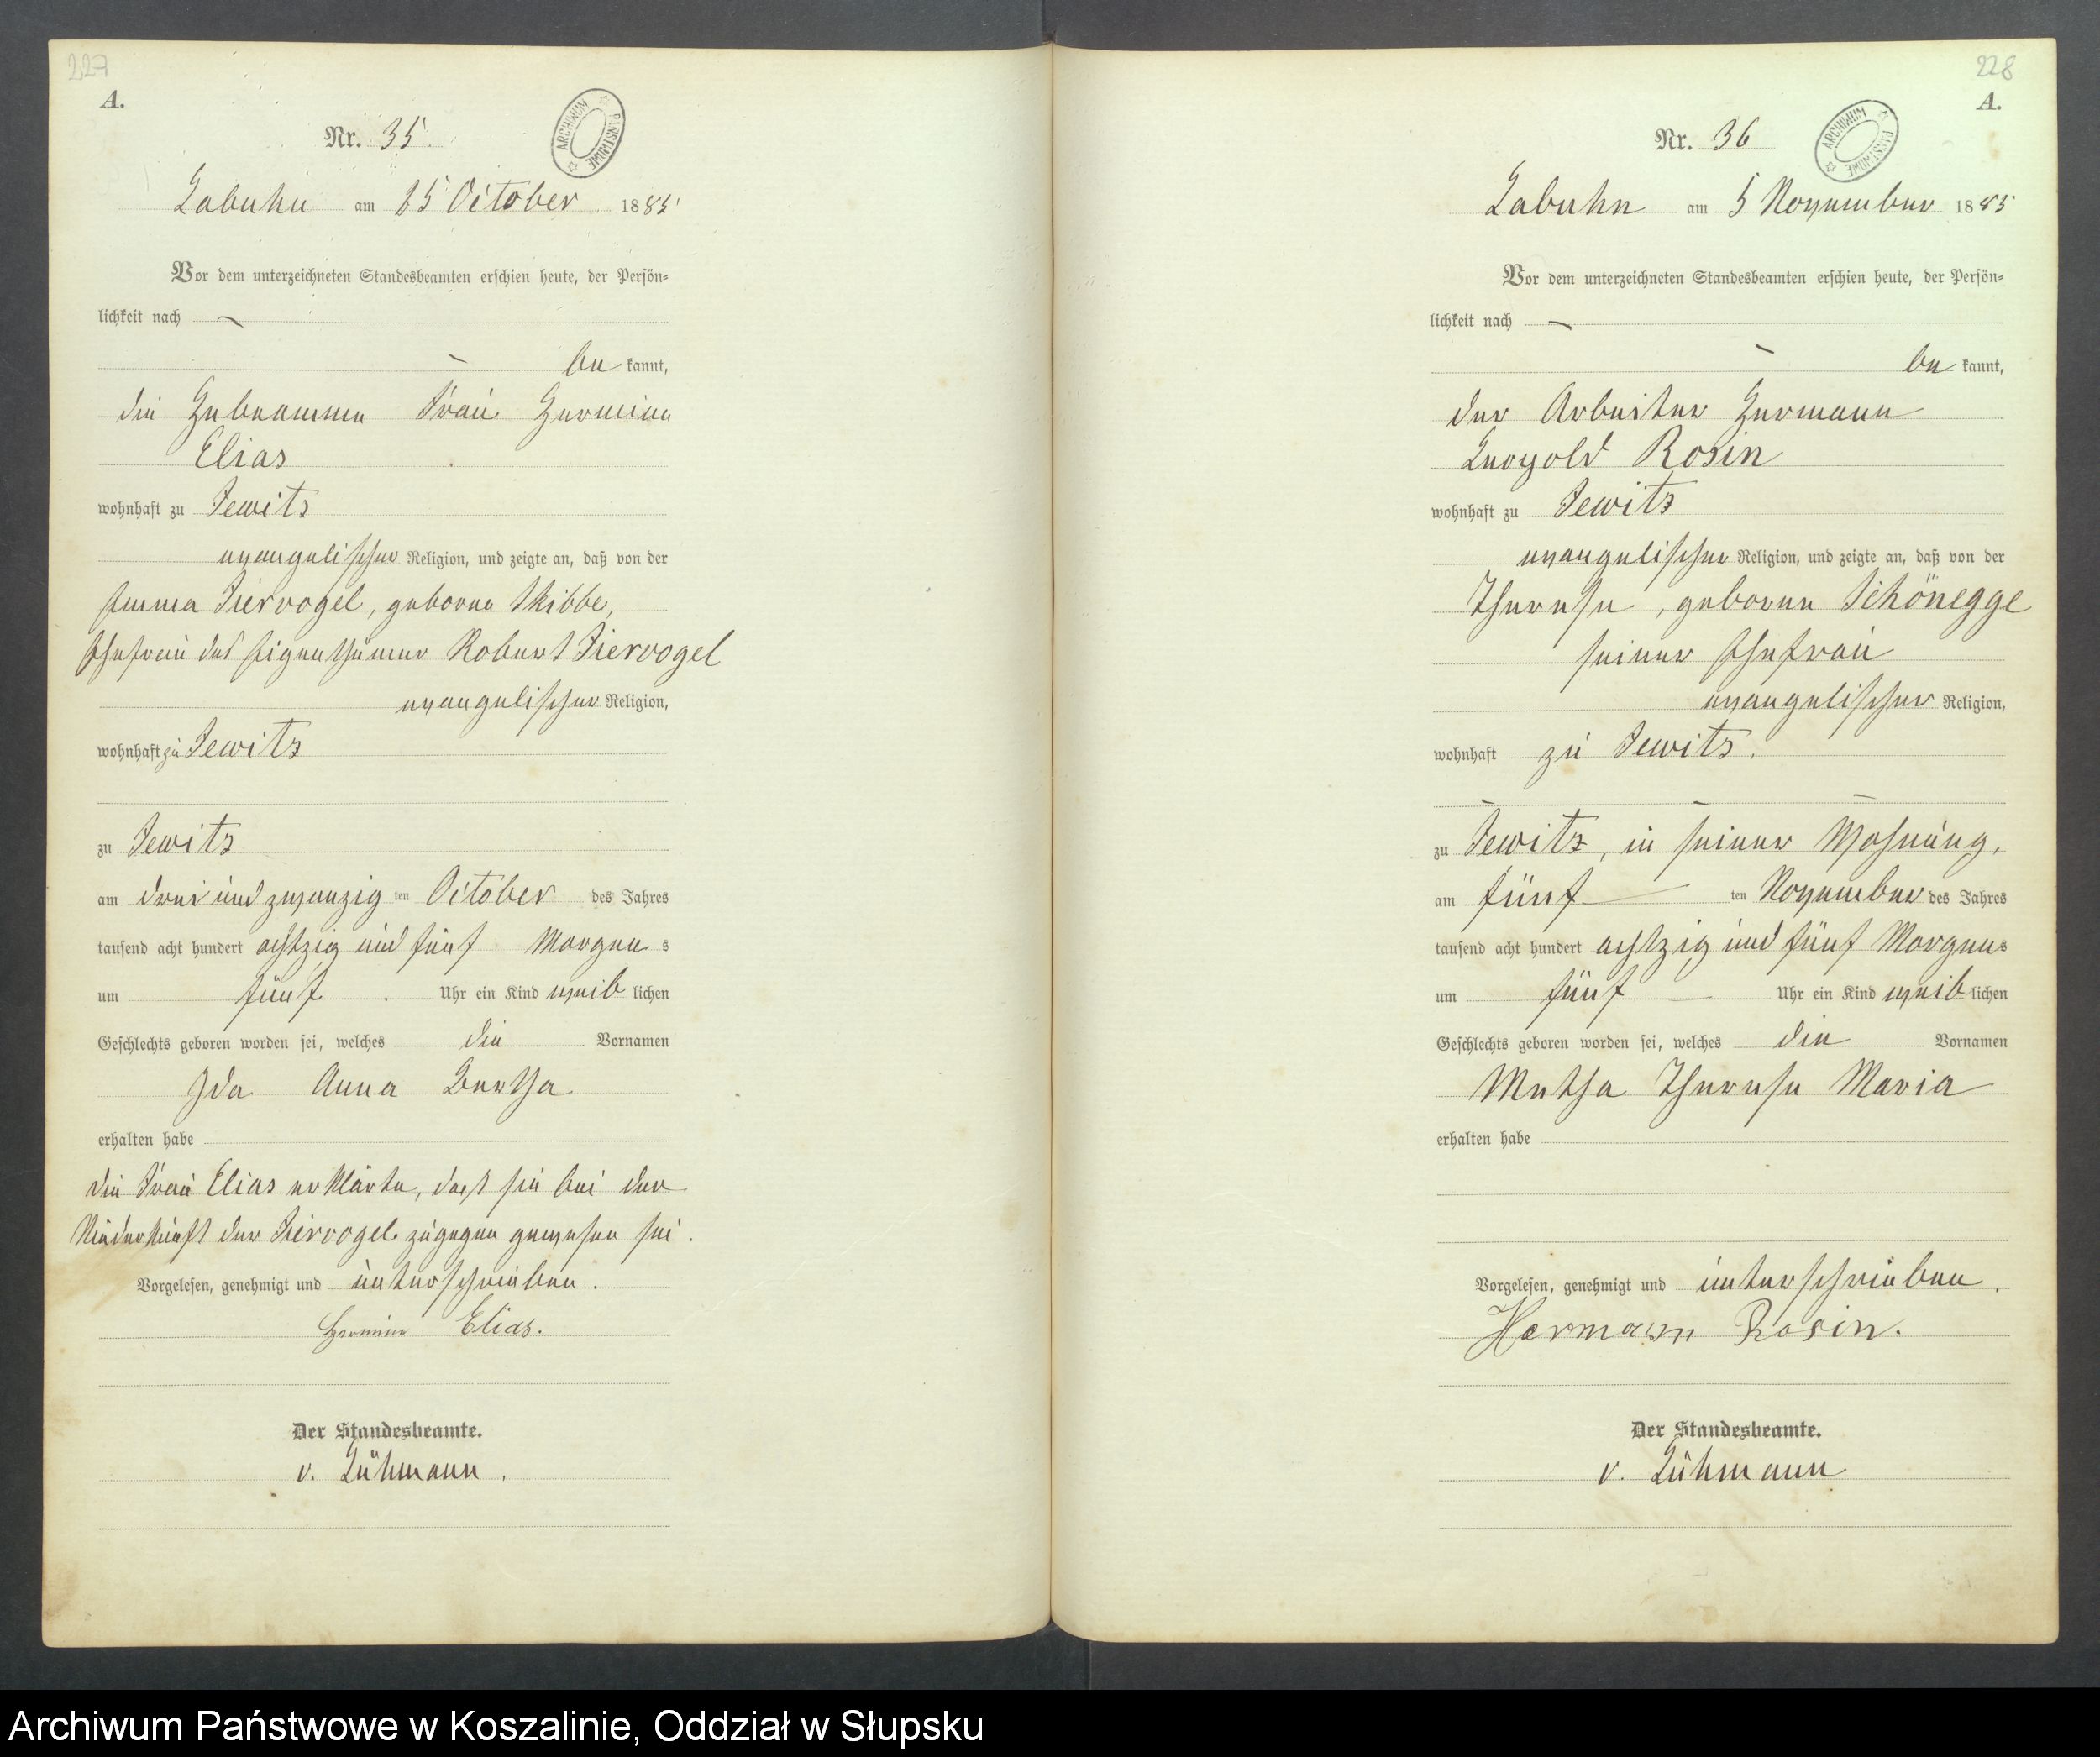 227
A.
Nr. 35.
ARCHIWUM PAŃSTWOWE
Labuhn am 25 October 1885
Vor dem unterzeichneten Standesbeamten erschien heute, der Persön=
lichkeit nach
be kannt,
die Hebeamme Frau Hermine
Elias
wohnhaft zu Jewitz
evangelischer Religion, und zeigte an, daß von der
Emma Tiervogel, geborne Skibbe,
Ehefrau des Eigenthümer Robert Tiervogel
evangelischer Religion,
wohnhaft zu Jewitz
zu Jewitz
am drei und zwanzig ten October des Jahres
tausend acht hundert achtzig und fünf Morgen s
um fünf Uhr ein Kind weib lichen
Geschlechts geboren worden sei, welches die Vornamen
Ida Anna Bertha
erhalten habe
die Frau Elias erklärte, daß sie bei der
Niederkunft der Tiervogel zugegen gewesen sei.
Vorgelesen, genehmigt und unterschrieben.
Hermine Elias.
Der Standesbeamte.
v. Lühmann.
228
A.
Nr. 36
ARCHIWUM PAŃSTWOWE
Labuhn am 5 November 1885
Vor dem unterzeichneten Standesbeamten erschien heute, der Persön=
lichkeit nach
be kannt,
der Arbeiter Hermann
Leopold Rosin
wohnhaft zu Jewitz
evangelischer Religion, und zeigte an, daß von der
Therese, geborne Schönegge
seiner Ehefrau
evangelischer Religion,
wohnhaft zu Jewitz.
zu Jewitz, in seiner Wohnung,
am fünf ten November des Jahres
tausend acht hundert achtzig und fünf Morgens
um fünf Uhr ein Kind weib lichen
Geschlechts geboren worden sei, welches die Vornamen
Metha Therese Maria
erhalten habe
Vorgelesen, genehmigt und unterschrieben.
Hermann Rosin.
Der Standesbeamte.
v. Lühmann
Archiwum Państwowe w Koszalinie, Oddział w Słupsku